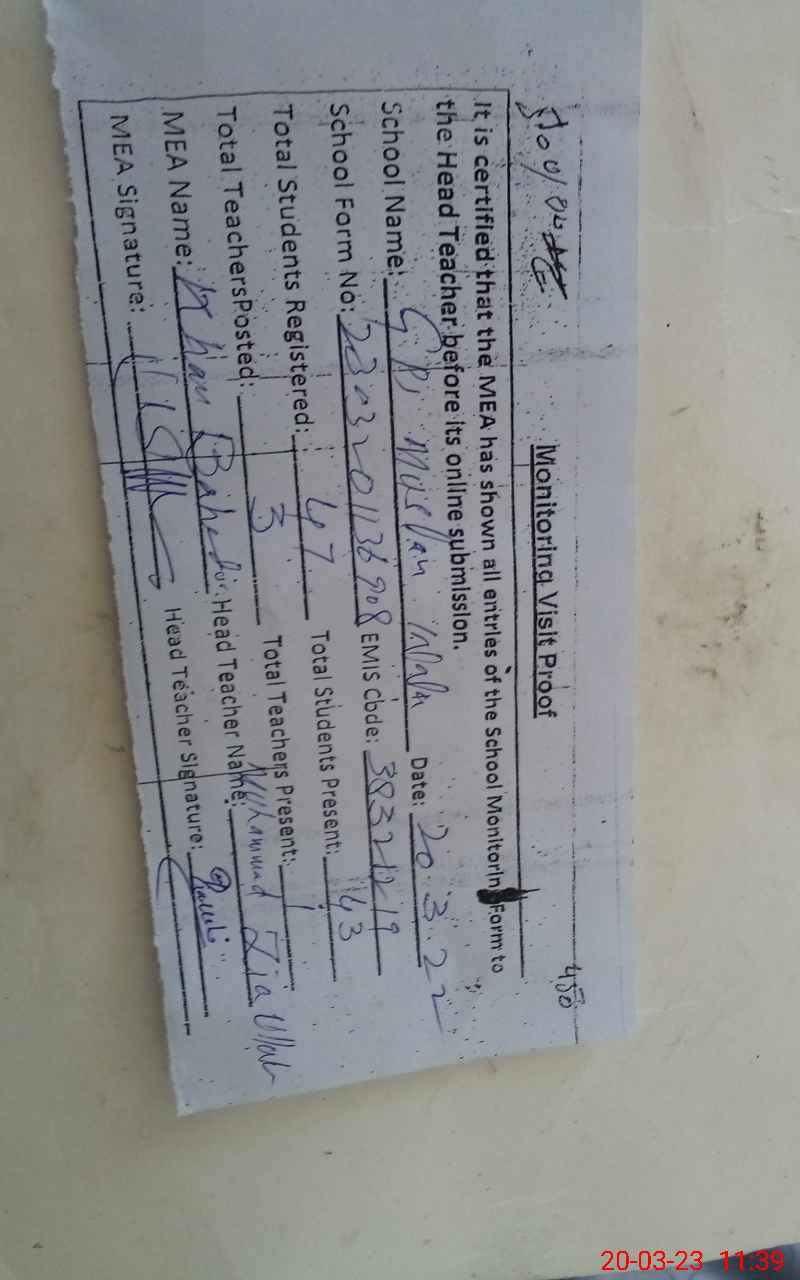 450
Monitoring Visit Proof
It is certified that the MEA has shown all entries of the School Monitorin Form to
the Head Teacher before its online submission.
School Name: Date: 20.3.22
School Form No: EMIS Code:
Total Students Registered: 47 Total Students Present: 43
Total Teachers Posted: 3 Total Teachers Present: 1
MEA Name: Khan Bahadur Head Teacher Name: Muhammad Zia Ullah
MEA Signature: Head Teacher Signature:
20-03-23 11:39